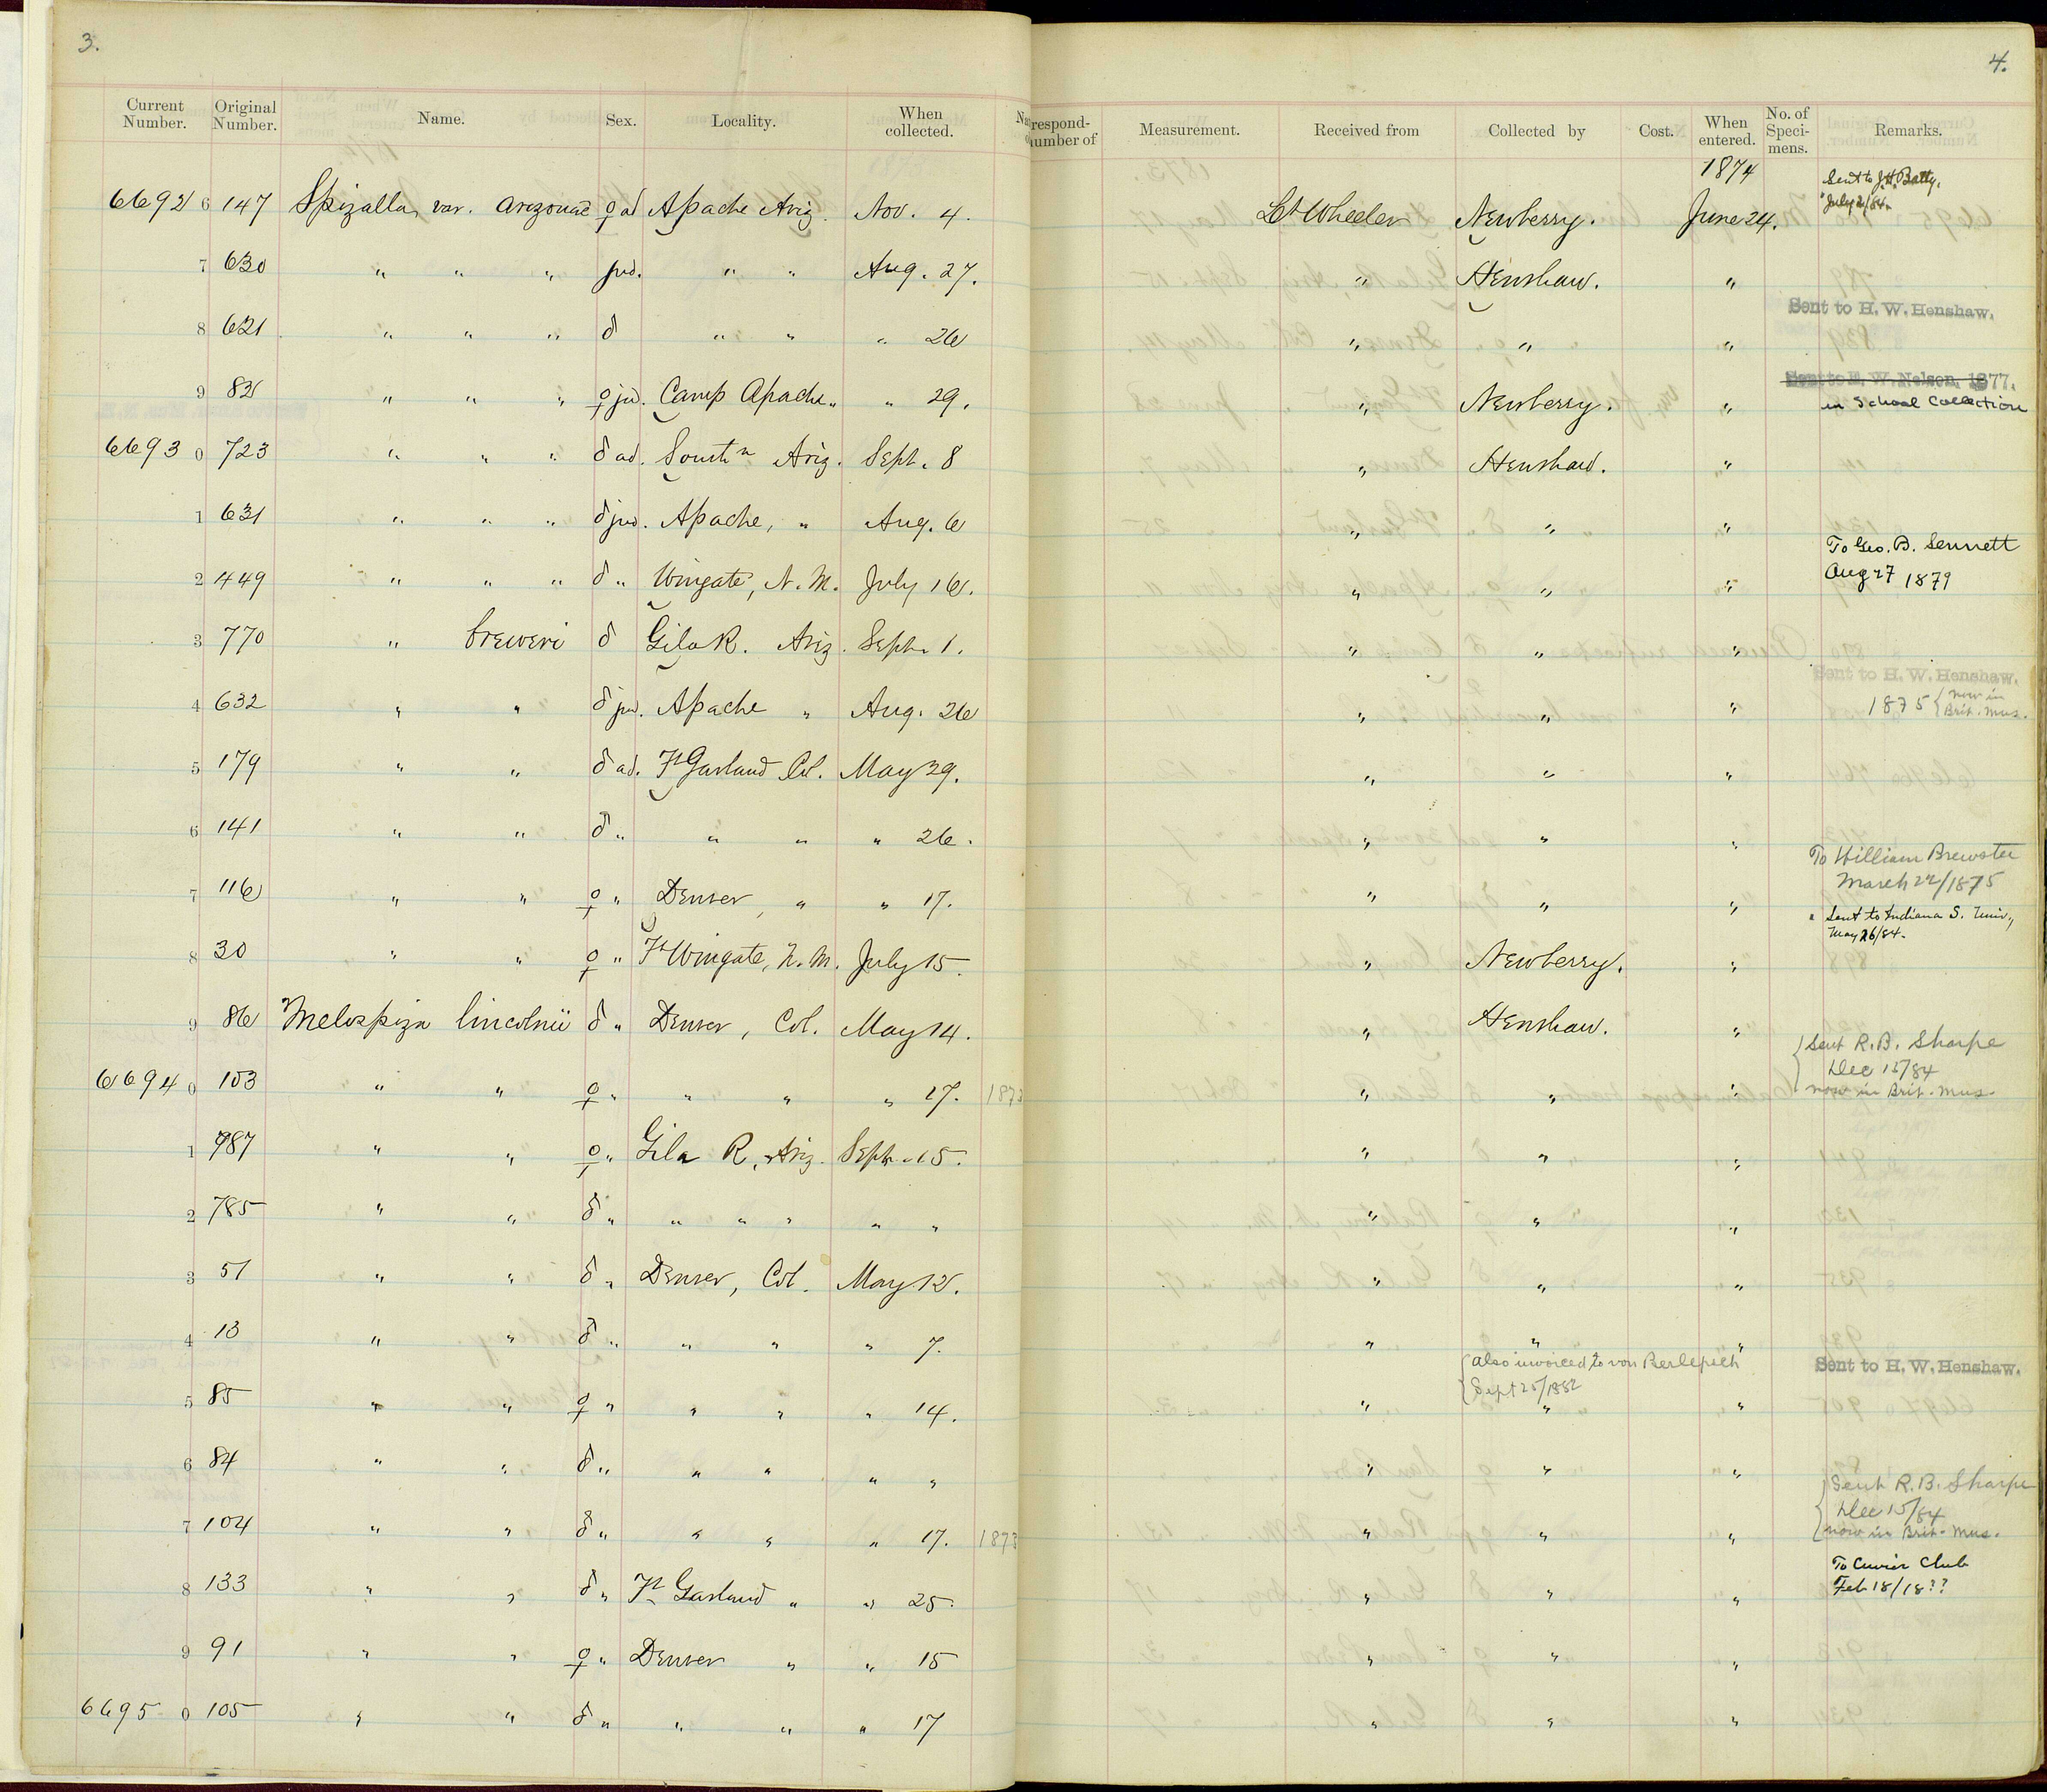 3.
4.
Current Number. Original Number. Name. Sex. Locality. When collected. respond- number of Measurement. Received from Collected by Cost. When entered. No. of Speci- mens. Remarks.
1874 Sent to J.H. Batty,
6692 6 147 Spizalla, var. arizonae ♀ ad Apache Ariz. Nov. 4. Lt Wheeler Newberry. June 24. " July 21/84.
7 630 " " " jud. " " Aug. 27. " Henshaw. "
Sent to H. W. Henshaw.
8 621 " " " ♂ " " " 26 " " "
Sent to E. W. Nelson, 1877.
9 82 " " " ♀ jud. Camp Apache " " 29. " Newberry. " in School Collection
6693 0 723 " " " ♂ ad. South'n Ariz. Sept. 8 " Henshaw. "
1 631 " " " ♂ jud. Apache, " Aug. 6 " " "
To Geo. B. Sennett
2 449 " " " ♂ " Wingate, N. M. July 16. " " " Aug 27 1879
3 770 " breweri ♂ Gila R. Ariz. Sept. 1. " " "
Sent to H. W. Henshaw.
4 632 " " ♂ jud. Apache " Aug. 26 " " " 1875 { now in Brit. Mus.
5 179 " " ♂ ad. Ft Garland Col. May 29. " " "
6 141 " " ♂ " " " " 26. " " "
To William Brewster
March 22/1875
7 116 " " ♀ " Denver, " " 17. " " " " Sent to Indiana S. Univ.,
May 26/84.
8 30 " " ♀ " Ft Wingate, N. M. July 15. " Newberry. "
9 86 Melospiza lincolnii ♂ " Denver, Col. May 14. " Henshaw. "
{ Sent R. B. Sharpe
Dec 15/84
6694 0 103 " " ♀ " " " " 17. 1873 " " " now in Brit. Mus.
1 987 " " ♀ " Gila R, Ariz. Sept. 15. " " "
2 785 " " ♂ " " " " " " " " "
3 51 " " ♂ " Denver, Col. May 12. " " "
4 13 " " ♂ " " " " 7. " " "
{ also invoiced to von Berlepsch Sent to H. W. Henshaw.
{ Sept 25/1882
5 85 " " ♀ " " " " 14. " " "
6 84 " " ♂ " " " " " " " "
{ Sent R. B. Sharpe
Dec 15/84
7 104 " " ♂ " " " " 17. 1873 " " " now in Brit. Mus.
To Cuvier Club
8 133 " " ♂ " Ft Garland " " 25. " " " Feb 18/18??
9 91 " " ♀ " Denver " " 15 " " "
6695 0 105 " " ♂ " " " " 17 " " "